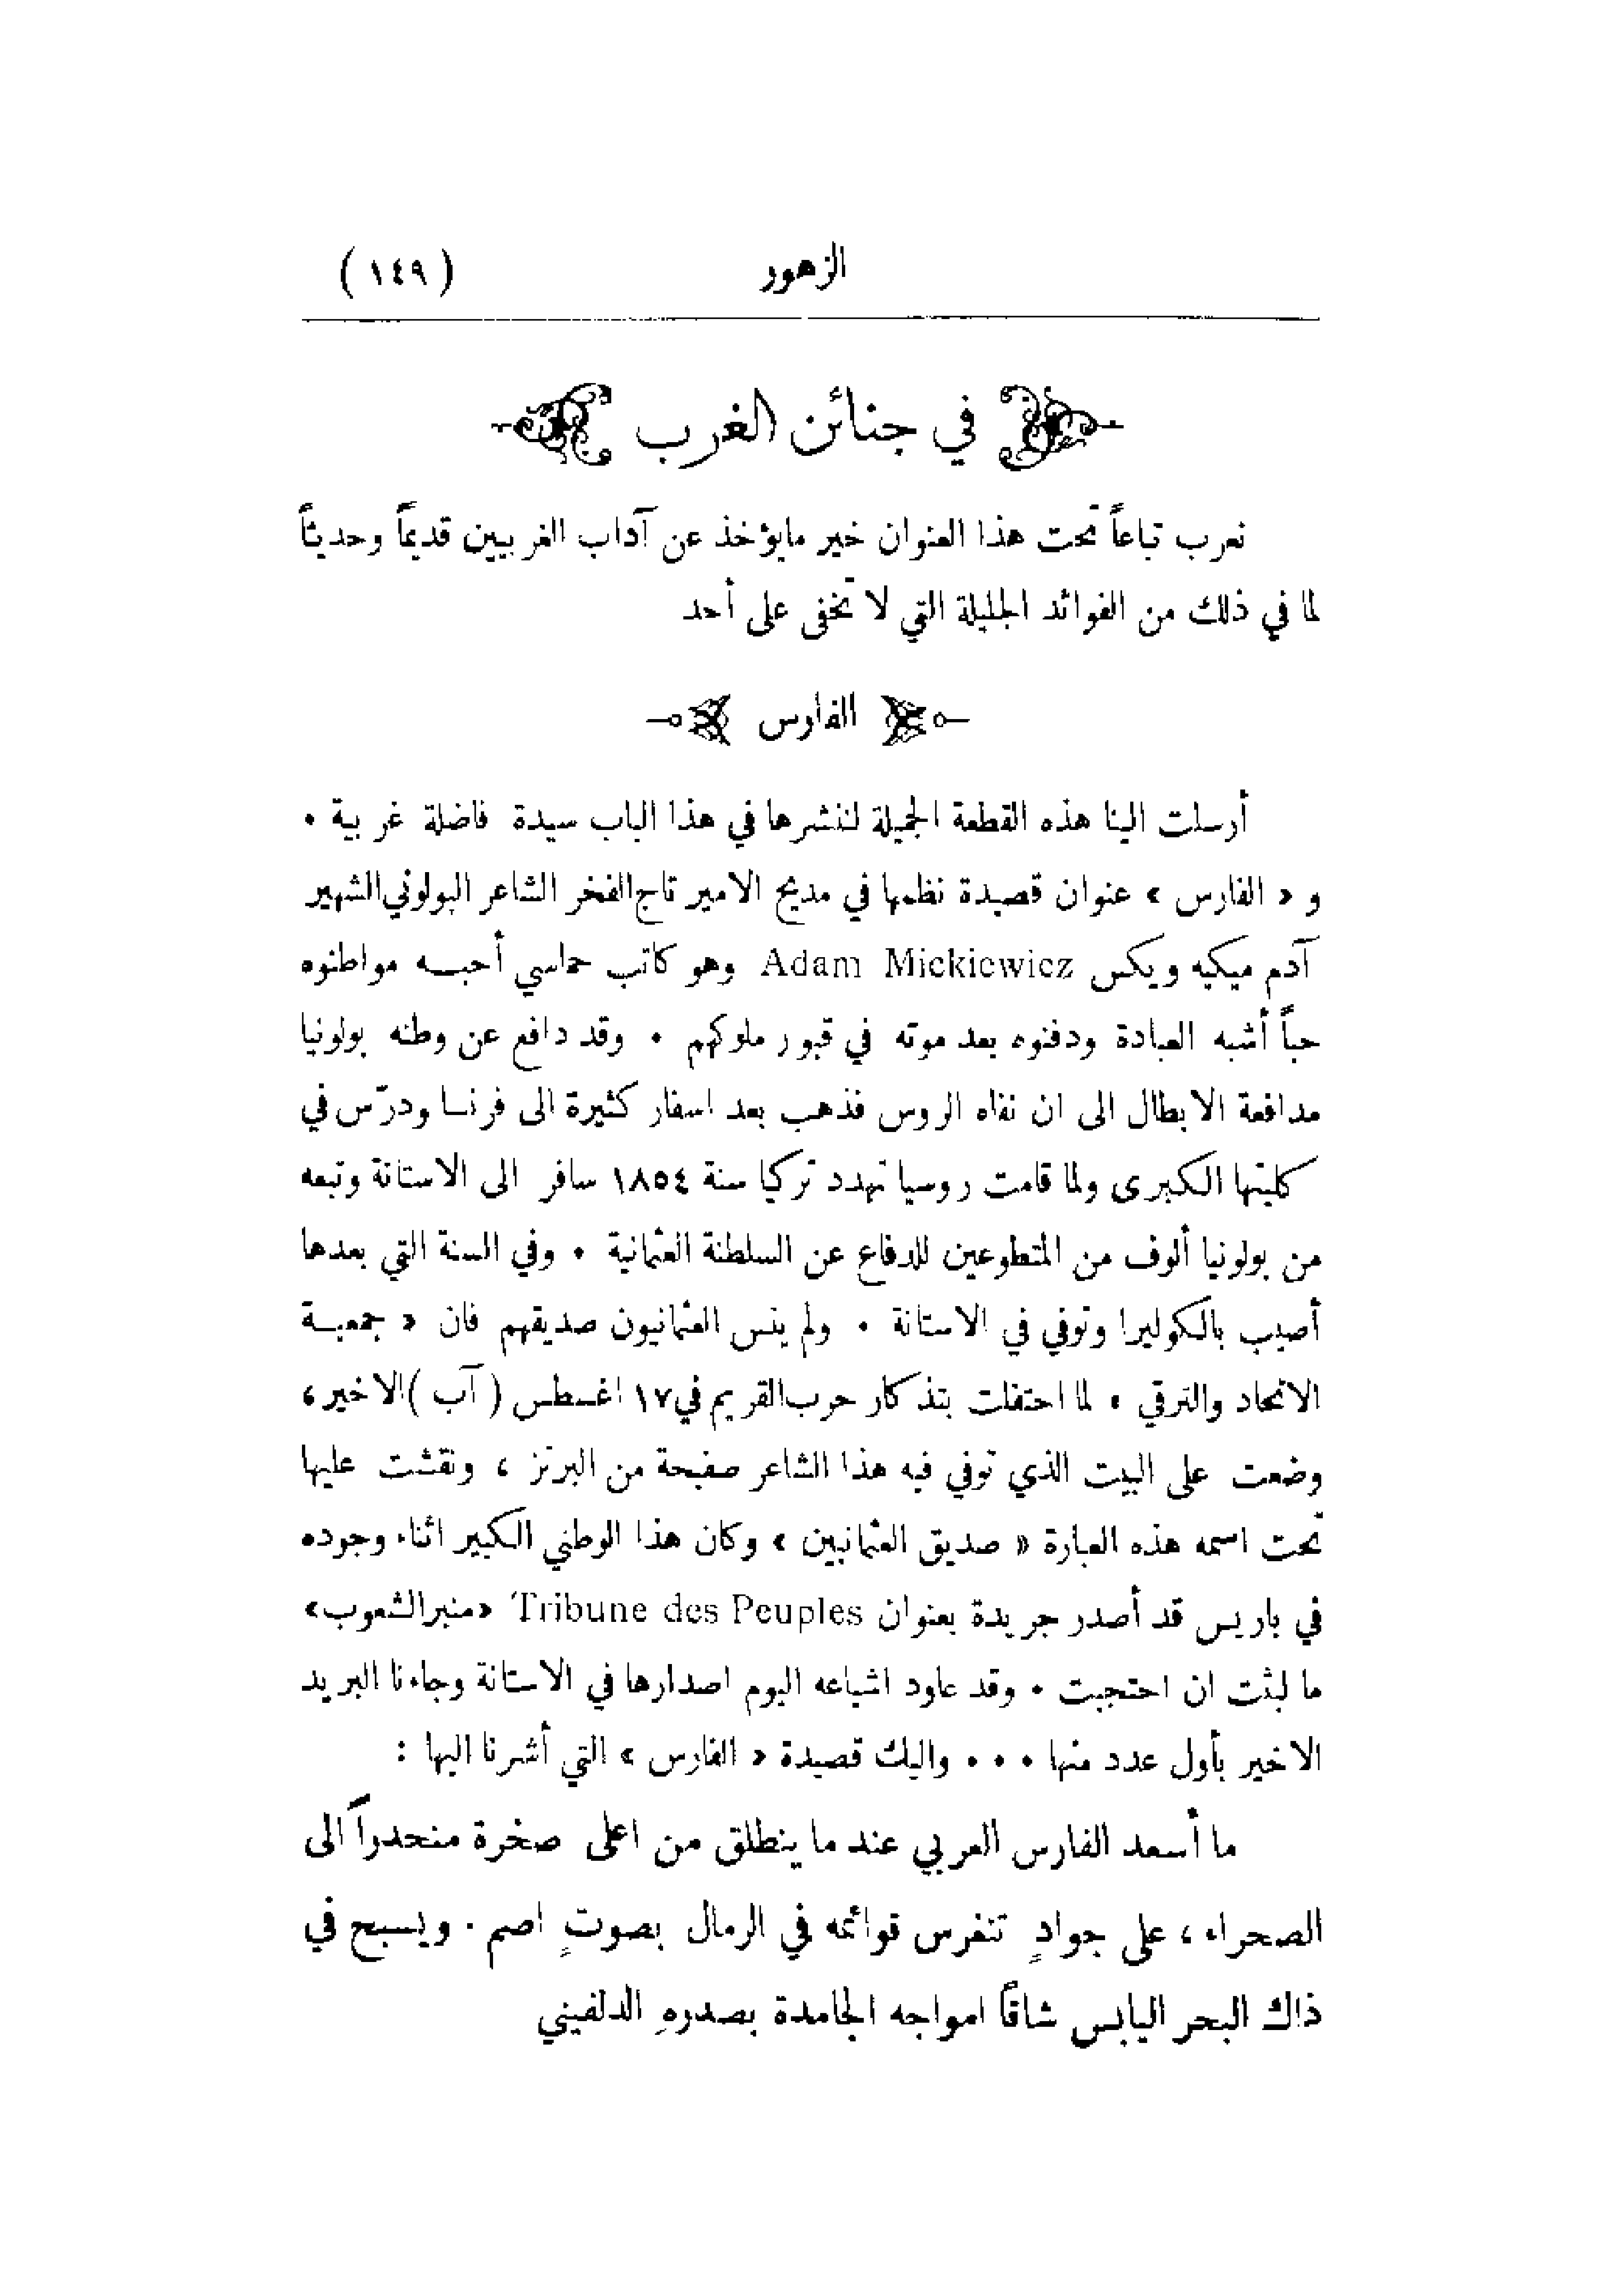 الزهور (١٤٩)
في جنائن الغرب
نعرب تباعاً تحت هذا العنوان خير مايؤخذ عن آداب الغربيين قديماً وحديثاً
لما في ذلك من الفوائد الجليلة التي لا تخفى على أحد
الفارس
أرسلت الينا هذه القطعة الجميلة لننشرها في هذا الباب سيدة فاضلة غربية .
و « الفارس » عنوان قصيدة نظمها في مديح الامير تاج الفخر الشاعر البولوني الشهير
آدم ميكيه ويكس Adam Mickiewicz وهو كاتب حماسي أحبه مواطنوه
حباً أشبه العبادة ودفنوه بعد موته في قبور ملوكهم . وقد دافع عن وطنه بولونيا
مدافعة الابطال الى ان نفاه الروس فذهب بعد اسفار كثيرة الى فرنسا ودرّس في
كليتها الكبرى ولما قامت روسيا تهدد تركيا سنة ١٨٥٤ سافر الى الاستانة وتبعه
من بولونيا ألوف من المتطوعين للدفاع عن السلطنة العثمانية . وفي السنة التي بعدها
أصيب بالكوليرا وتوفي في الاستانة . ولم ينس العثمانيون صديقهم فان « جمعية
الاتحاد والترقي » لما احتفلت بتذكار حرب القريم في ١٧ اغسطس ( آب ) الاخير ،
وضعت على البيت الذي توفي فيه هذا الشاعر صفيحة من البرنز ، ونقشت عليها
تحت اسمه هذه العبارة « صديق العثمانيين » وكان هذا الوطني الكبير اثناء وجوده
في باريس قد أصدر جريدة بعنوان Tribune des Peuples «منبر الشعوب»
ما لبثت ان احتجبت . وقد عاود اشياعه اليوم اصدارها في الاستانة وجاءنا البريد
الاخير بأول عدد منها . . . واليك قصيدة « الفارس » التي أشرنا اليها :
ما أسعد الفارس العربي عند ما ينطلق من اعلى صخرة منحدراً الى
الصحراء ، على جوادٍ تنغرس قوائمه في الرمال بصوتٍ اصم . ويسبح في
ذاك البحر اليابس شاقاً امواجه الجامدة بصدرهِ الدلفيني